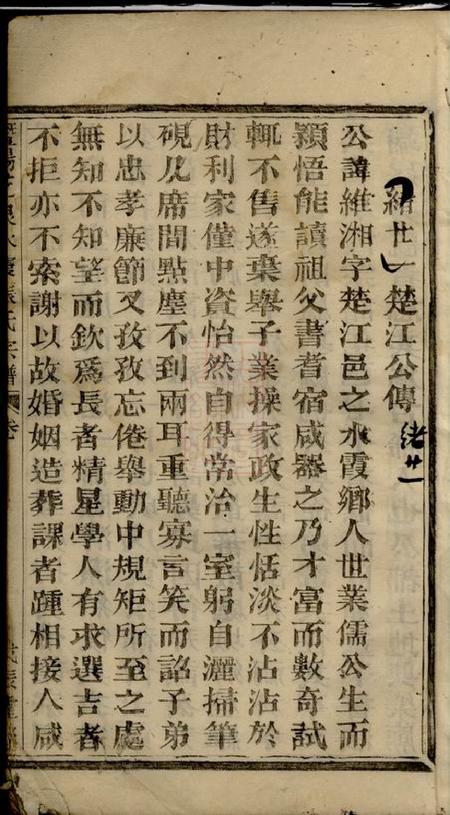 緒廿一楚江公傳 緒廿一
公諱維湘字楚江邑之水霞鄉人世業儒公生而
穎悟能讀祖父書耆宿咸器之乃才富而數奇試
輒不售遂棄舉子業操家政生性恬淡不沾沾於
財利家僅中資怡然自得常治一室躬自灑掃筆
硯几席間點塵不到兩耳重聽寡言笑而詔子弟
以忠孝廉節又孜孜忘倦舉動中規矩所至之處
無知不知望而欽爲長者精星學人有求選吉者
不拒亦不索謝以故婚姻造葬課者踵相接人咸
張氏宗譜 卷